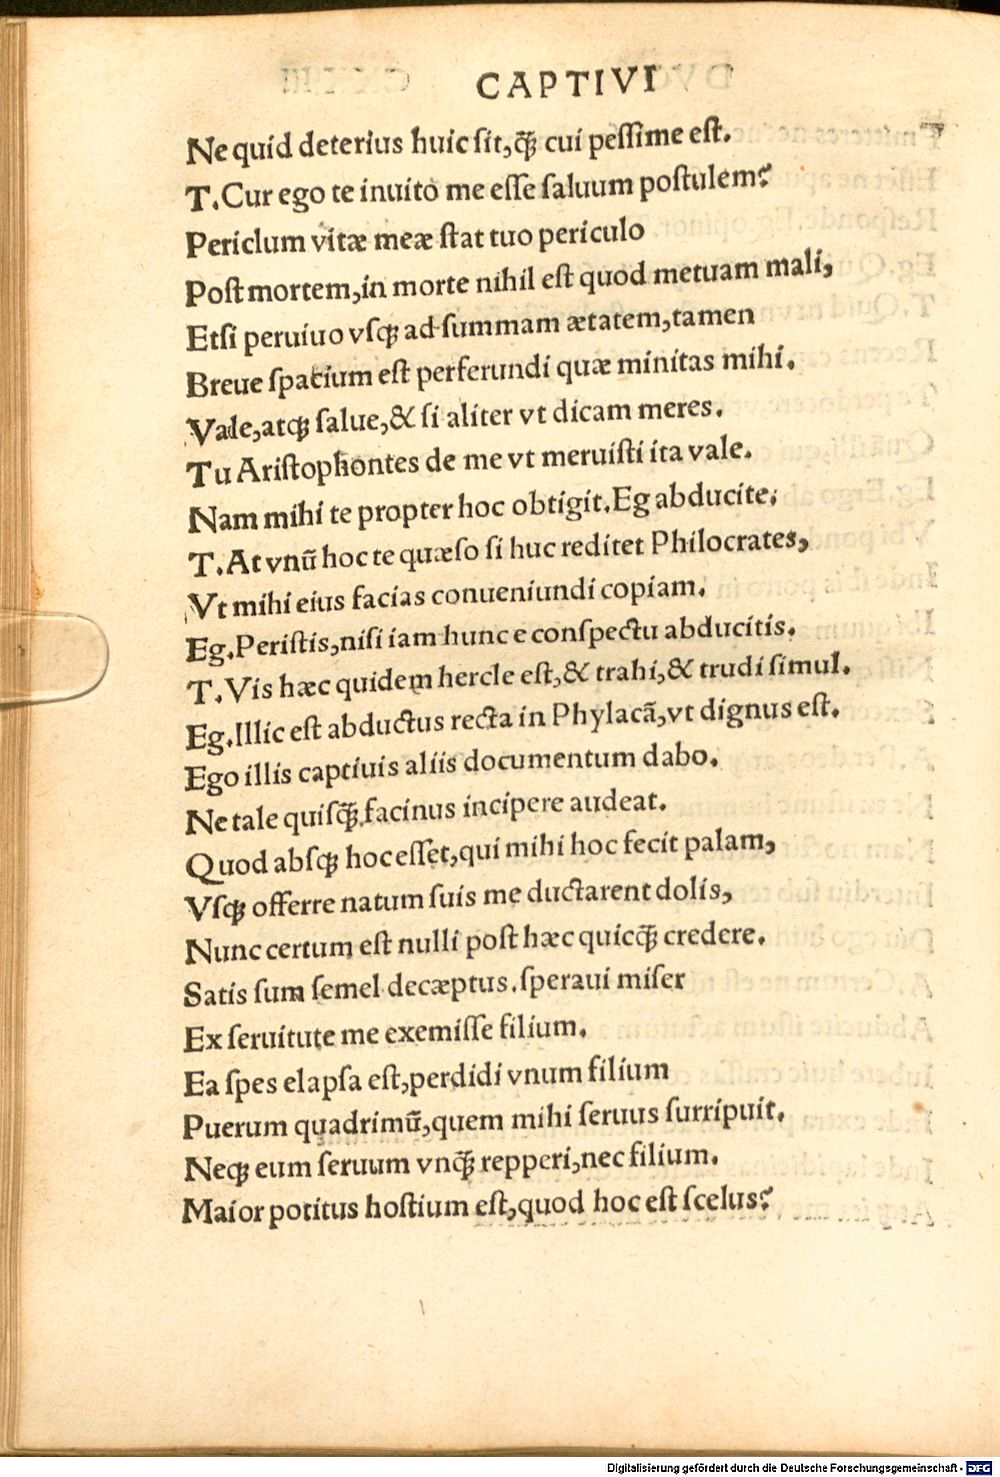 CAPTIVI
Ne quid deterius huic sit,q̃ꝫ cui pessime est.
T.Cur ego te inuito me esse saluum postulem?
Periclum vitæ meæ stat tuo periculo
Post mortem,in morte nihil est quod metuam mali,
Etsi peruiuo vsqꝫ ad summam ætatem,tamen
Breue spatium est perferundi quæ minitas mihi.
Vale,atqꝫ salue,& si aliter vt dicam meres.
Tu Aristophontes de me vt meruisti ita vale.
Nam mihi te propter hoc obtigit.Eg abducite.
T.At vnũ hoc te quæso si huc reditet Philocrates,
Vt mihi eius facias conueniundi copiam.
Eg.Peristis,nisi iam hunc e conspectu abducitis.
T.Vis hæc quidem hercle est,& trahi,& trudi simul.
Eg.Illic est abductus recta in Phylacã,vt dignus est.
Ego illis captiuis aliis documentum dabo.
Ne tale quisq̃ꝫ facinus incipere audeat.
Quod absqꝫ hoc esset,qui mihi hoc fecit palam,
Vsqꝫ offerre natum suis me ductarent dolis,
Nunc certum est nulli post hæc quicq̃ꝫ credere.
Satis sum semel decæptus.speraui miser
Ex seruitute me exemisse filium.
Ea spes elapsa est,perdidi vnum filium
Puerum quadrimũ,quem mihi seruus surripuit.
Neqꝫ eum seruum vnq̃ꝫ repperi,nec filium.
Maior potitus hostium est,quod hoc est scelus?
Digitalisierung gefördert durch die Deutsche Forschungsgemeinschaft - DFG